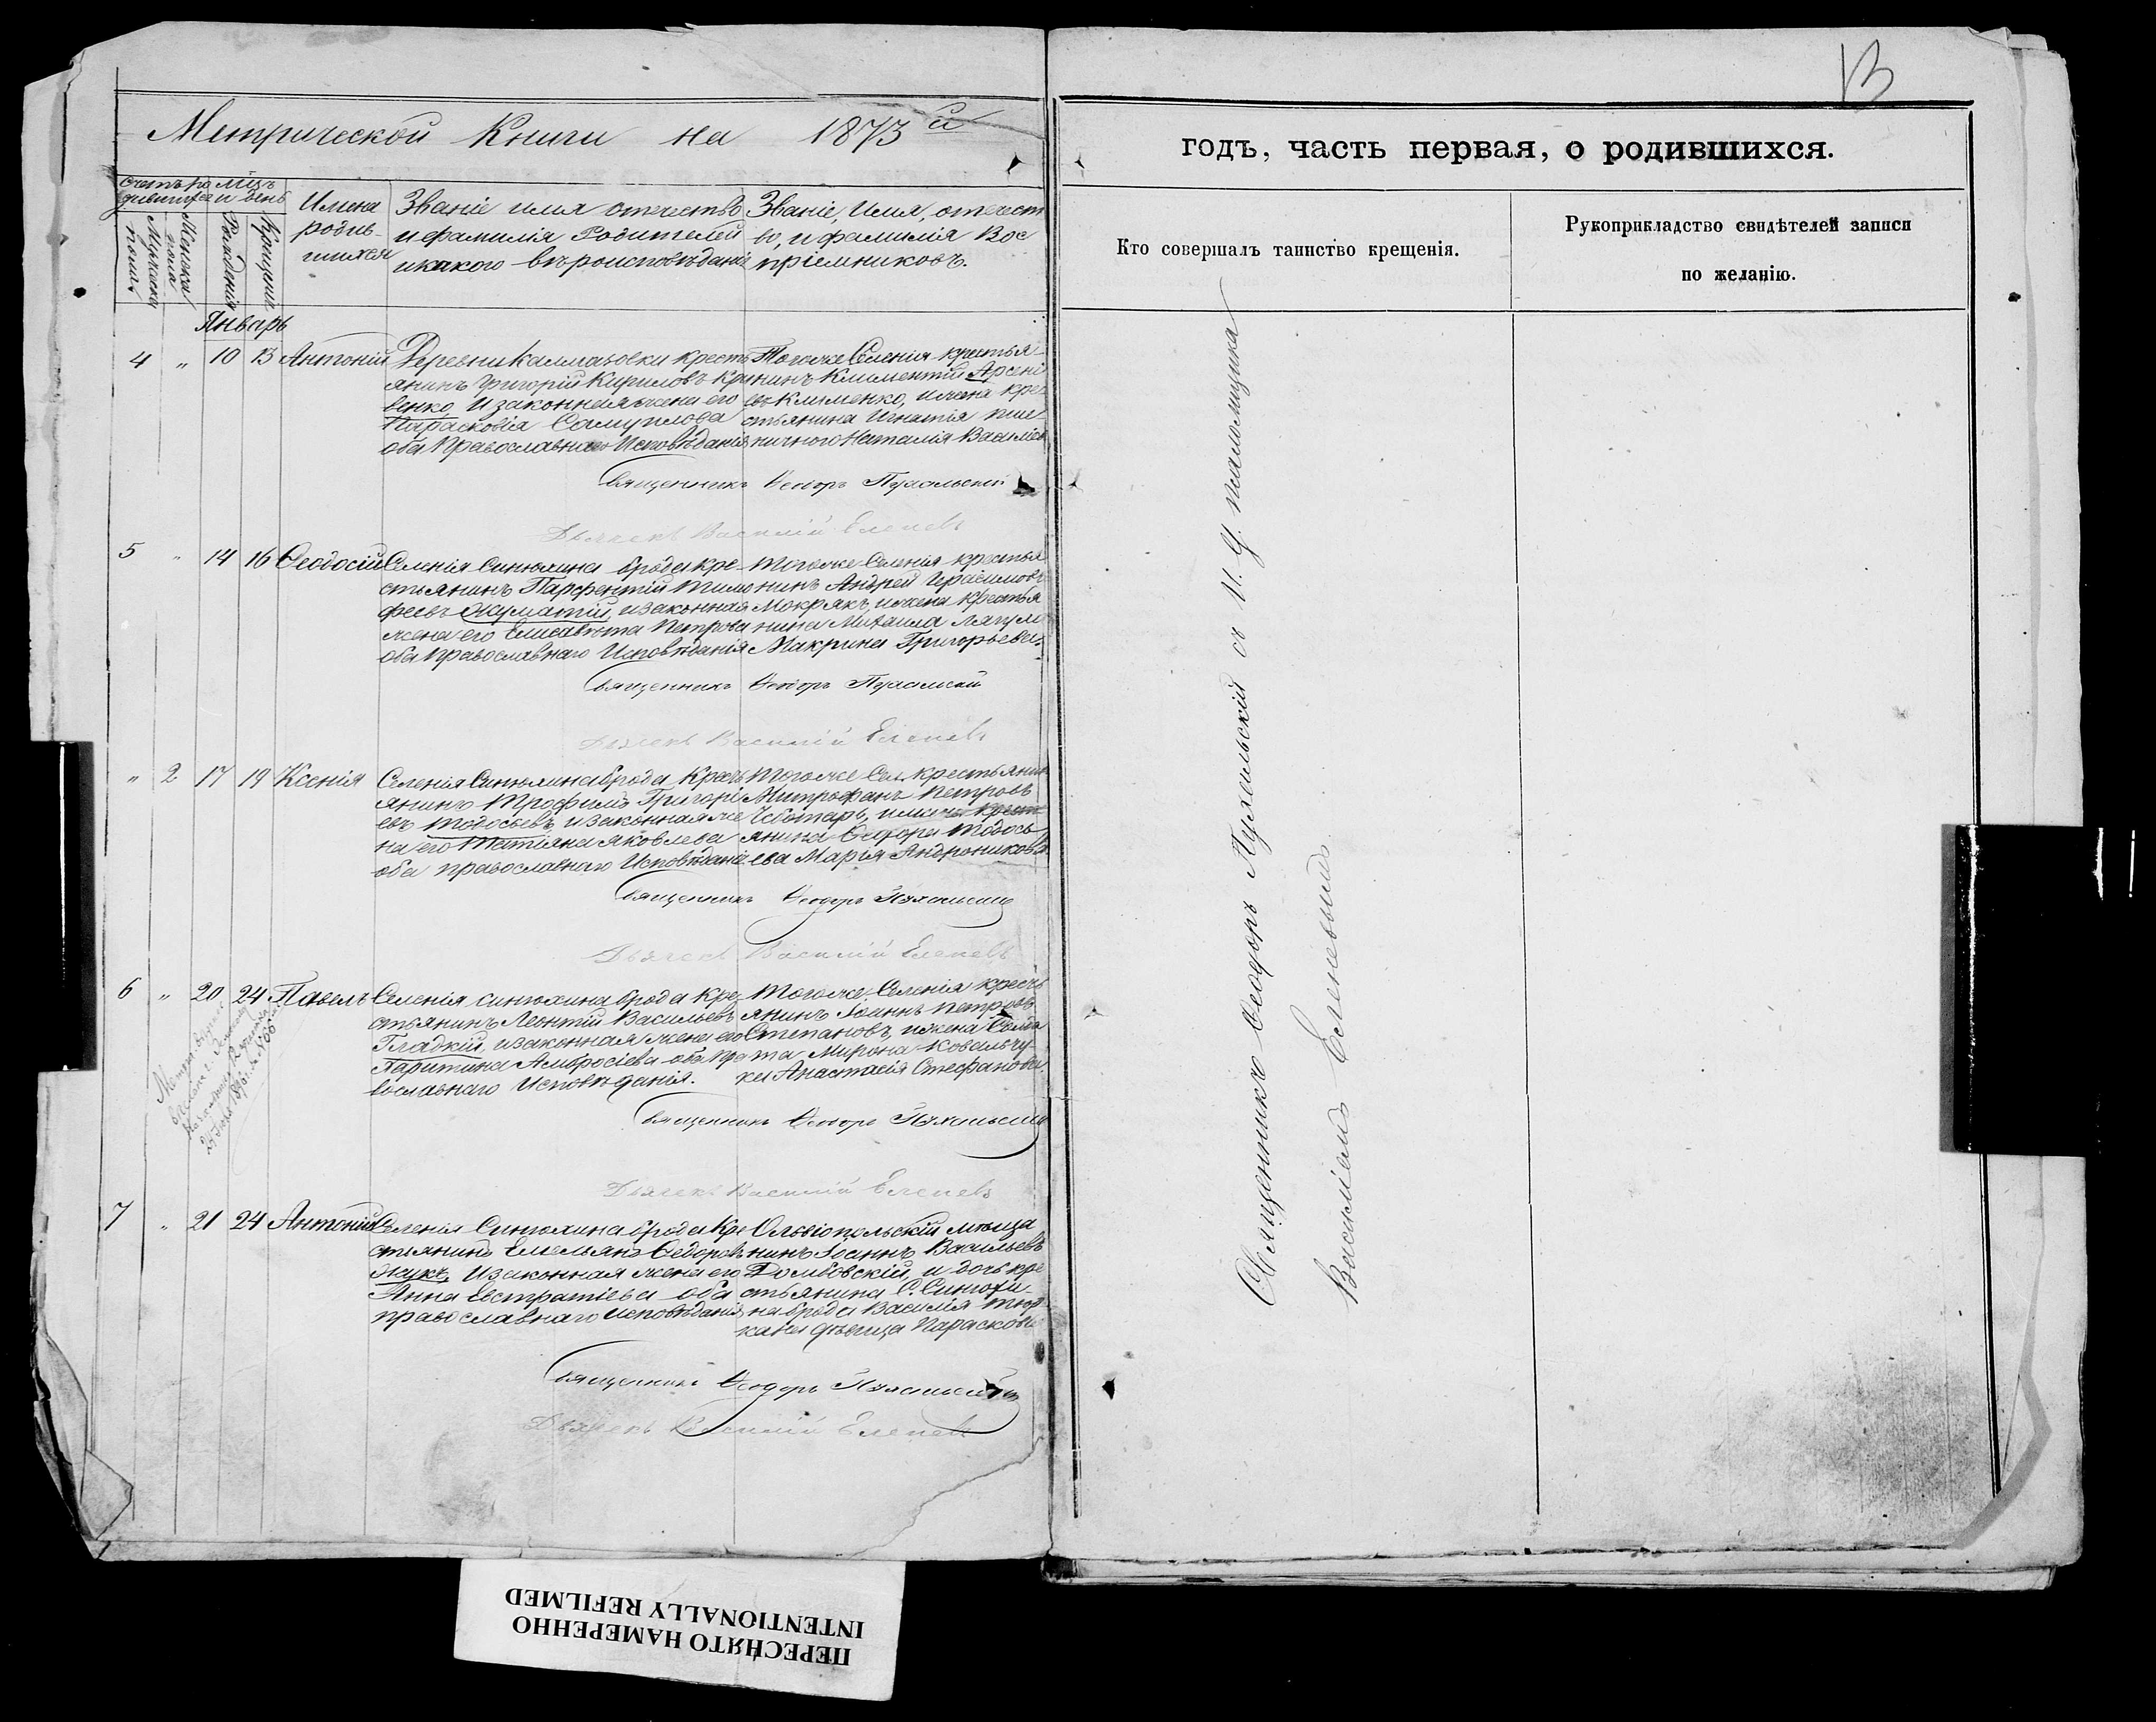 Метрической Книги на 1873й
годъ, часть первая, о родившихся.
13
счетъ родившихся
Мужеска пола
Женска пола
мѣсъ и день
Рожденія
Крещенія
Имена родив-
шихся
Званіе имя отечество
и фамилія Родителей
и какого вѣроисповѣданія
Званіе, Имя, отечест
во, и фамилія Вос
пріемниковъ.
Кто совершалъ таинство крещенія.
Рукоприкладство свидѣтелей записи
по желанію.
Январь
4 " 10 13 Антоній
Деревни Калмазовки кресть
янинъ Григорій Кириловъ Кри
венко, и законная жена его
Парасковія Самуилова
оба Православнаго Исповѣданія
Тогоже Селенія крестья
нинъ Климентій Арсені
евъ Клименко, и жена кре
стьянина Игнатія пше
ничного Наталія Василіев
Священникъ Ѳеодоръ Пухальскій
Дьячекъ Василій Еленевъ
5 " 14 16 Ѳеодосій
Селенія Синюхина брода кре
стьянинъ Парфентій Тимо
феевъ Жуматій, и законная
жена его Елисавѣта Петрова
оба Православнаго Исповѣданія
Тогоже Селенія крестья
нинъ Андрей Герасимовъ
Мокрякъ, и жена крестья
нина Михаила
Макрина Григорьева.
Священникъ Ѳеодоръ Пухальскій
Дьячекъ Василій Еленевъ
" 2 17 19 Ксенія
Селенія Синюхина брода Крест
янинъ Трофимъ Григорі
евъ Тодосьевъ, и законная же
на его Татіяна Яковлева
оба православнаго Исповѣданія
Тогоже Сел. крестьянинъ
Митрофанъ Петровъ
Чеботарь, и жена крест
янина Ѳеодора Тодось
ева Марья Андроникова
Священникъ Ѳеодоръ Пухальскій
Дьячекъ Василій Еленевъ
6 " 20 24 Павелъ
Селенія Синюхина брода Кре
стьянинъ Леонтій Васильевъ
Гладкій, и законная жена его
Харитина Амбросіева оба Пра
вославнаго Исповѣданія.
Тогоже Селенія крест
янинъ Іоаннъ Петровъ
Степановъ, и жена Солда
та Мирона Ковальчу
ка Анастасія Стефанова
Священникъ Ѳеодоръ Пухальскій
Дьячекъ Василій Еленевъ
7 " 21 24 Антоній
Селенія Синюхина брода Кре
стьянинъ Емельянъ Ѳедоровъ
Жукъ, и законная жена его
Анна Евстратіева оба
православнаго исповѣданія
Ольвіопольскій мѣща
нинъ Іоаннъ Васильевъ
Домбовскій, и дочь кре
стьянина С. Синюхи
на брода Василія
дѣвица Парасковія
Священникъ Ѳеодоръ Пухальскій
Дьячекъ Василій Еленевъ
Священникъ Ѳеодоръ Пухальскій съ И. Д. псаломщика
Василіемъ Еленевымъ
ПЕРЕСНЯТО НАМЕРЕННО
INTENTIONALLY REFILMED